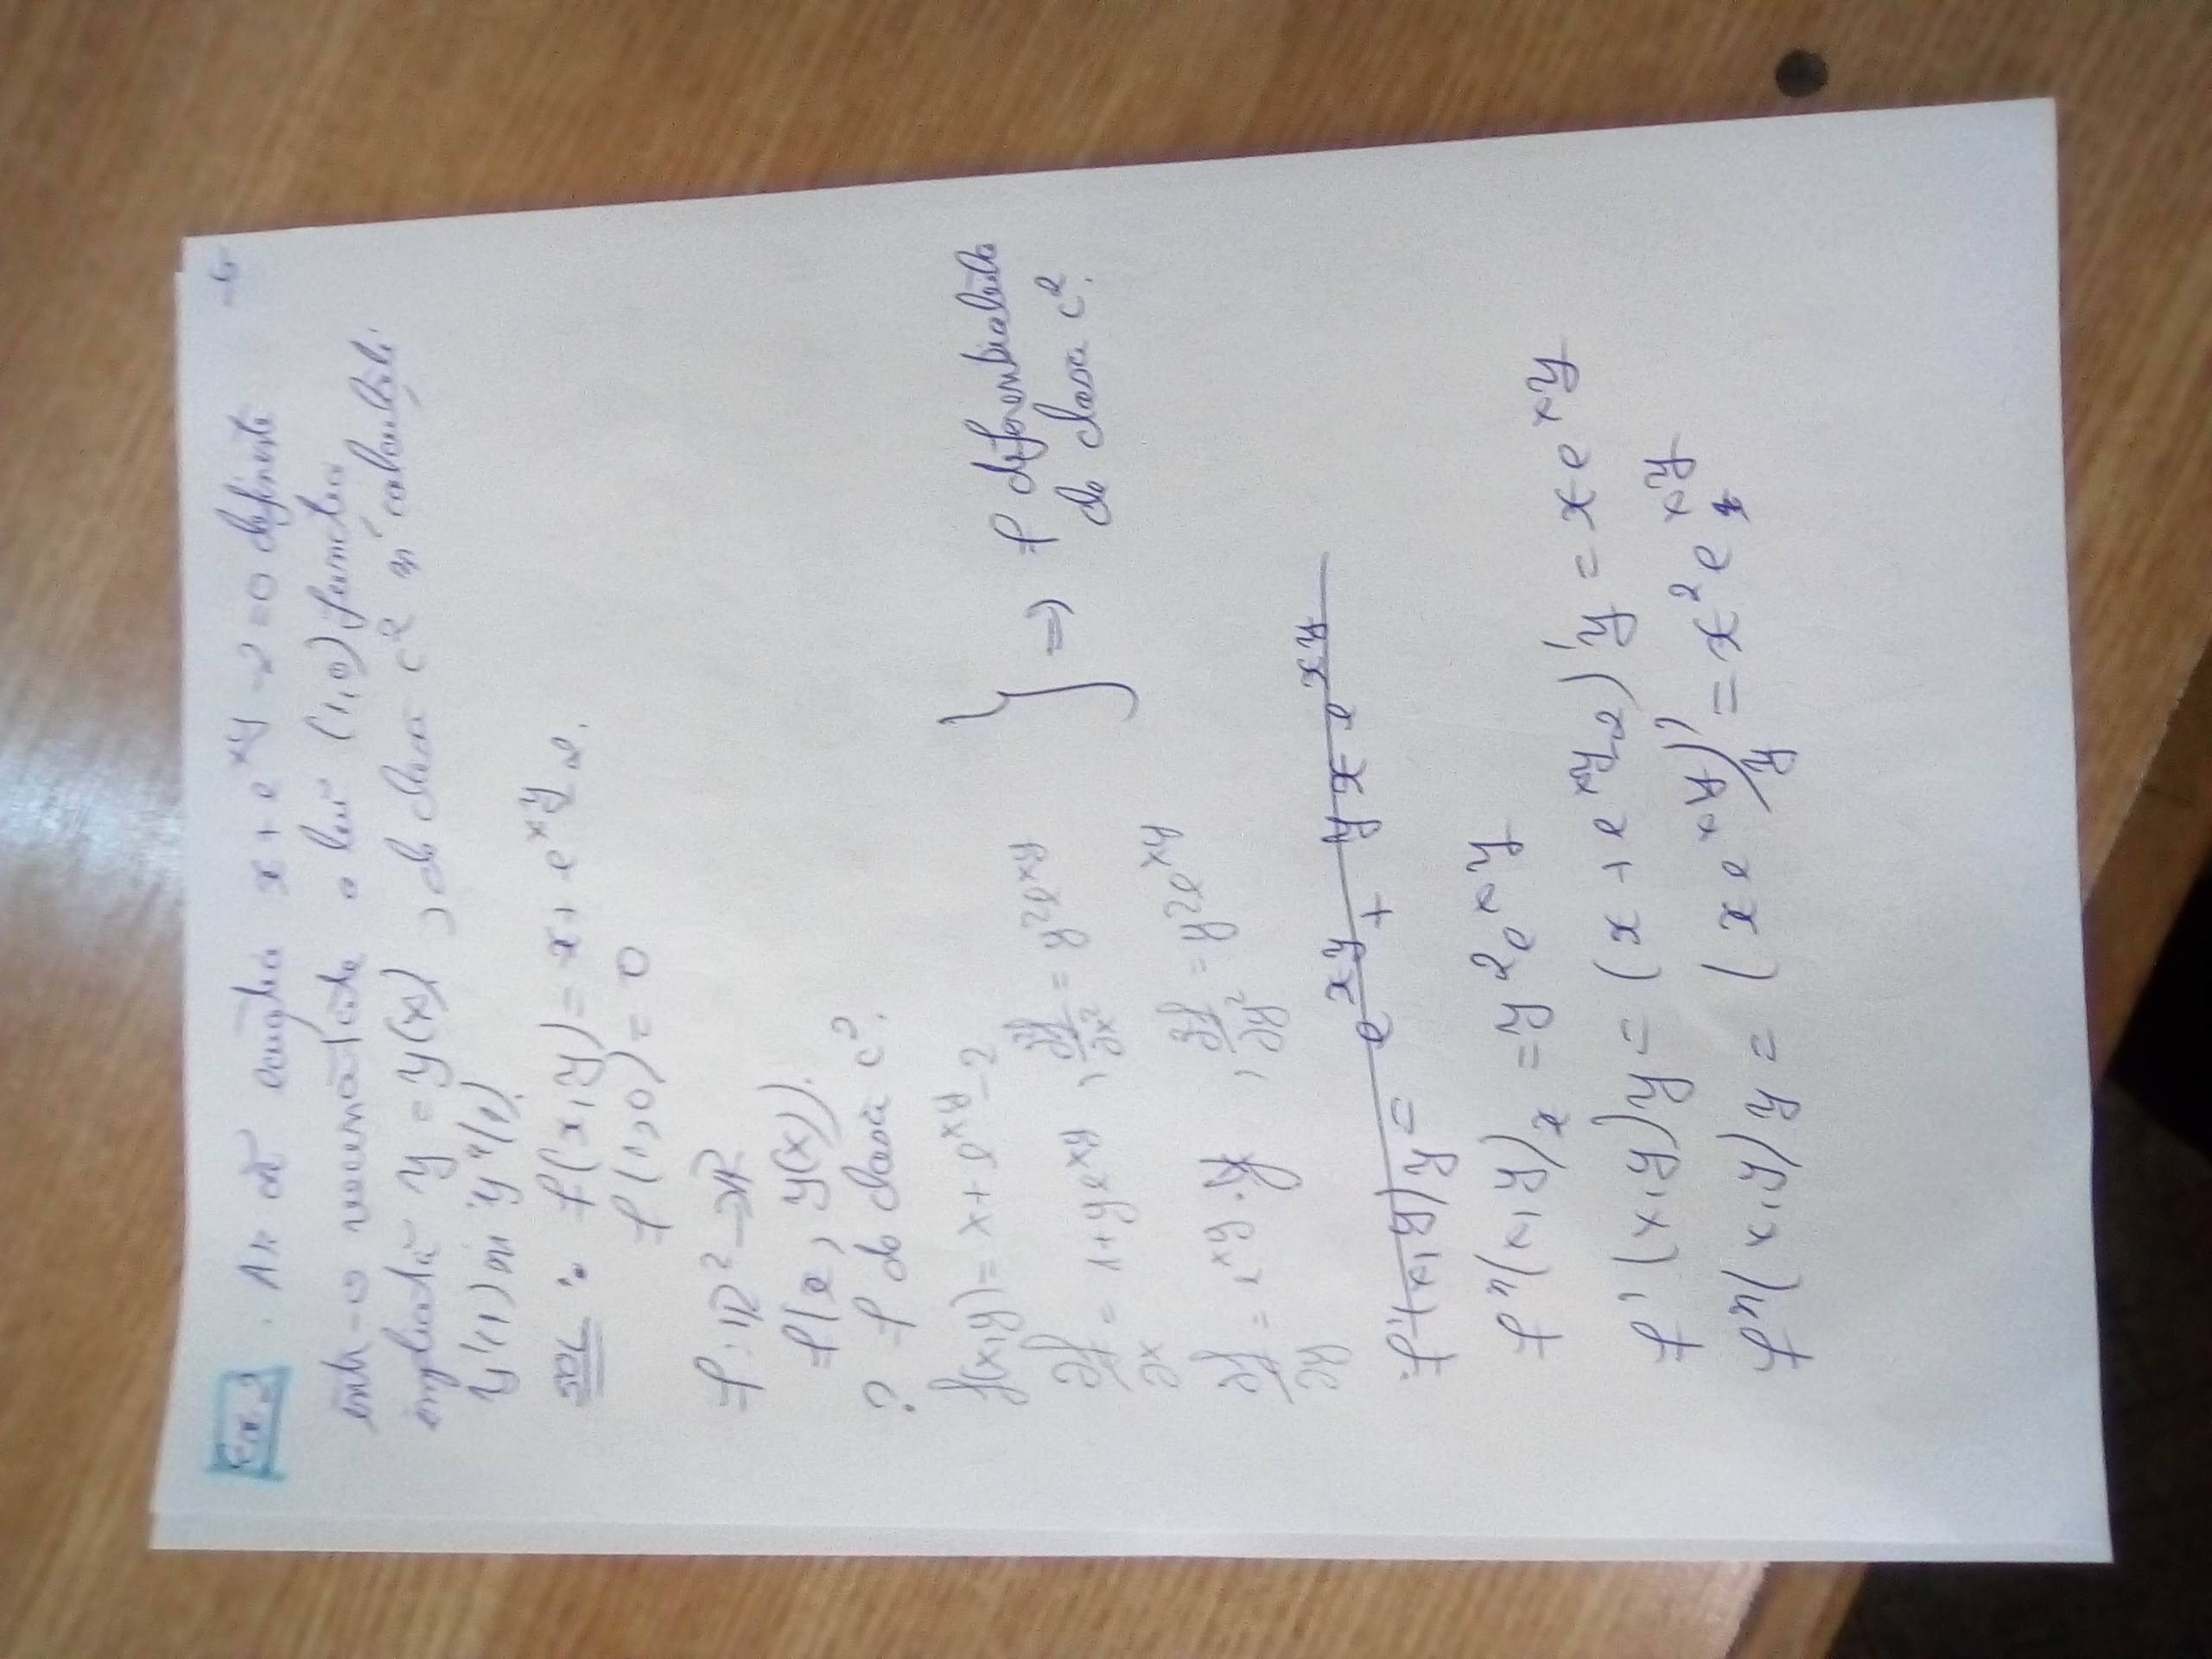 Ex. 2. Ar că ecuația x + e^xy - 2 = 0 definește
într-o vecinătate a lui (1,0) funcția
implicită y = y(x), de clasă C² și calculați
y'(1) și y''(1).
f(x,y) = x + e^xy - 2.
f(1,0) = 0
f: ℝ² → ℝ
y(x)).
? f de clasă C².
f(x,y) = x + e^xy - 2
∂f/∂x = 1 + ye^xy, ∂f/∂x² = y²e^xy } ⇒ f diferențiabilă
∂f/∂y = e^xy · , ∂f/∂y² = y²e^xy de clasă C².
f'(x,y)y = e^xy + yxe^xy
f''(x,y)x = y²e^xy
f'(x,y)y = (x + e^xy-2)'y = xe^xy
f''(x,y)y = (xe^xy)'y = x²e^xy